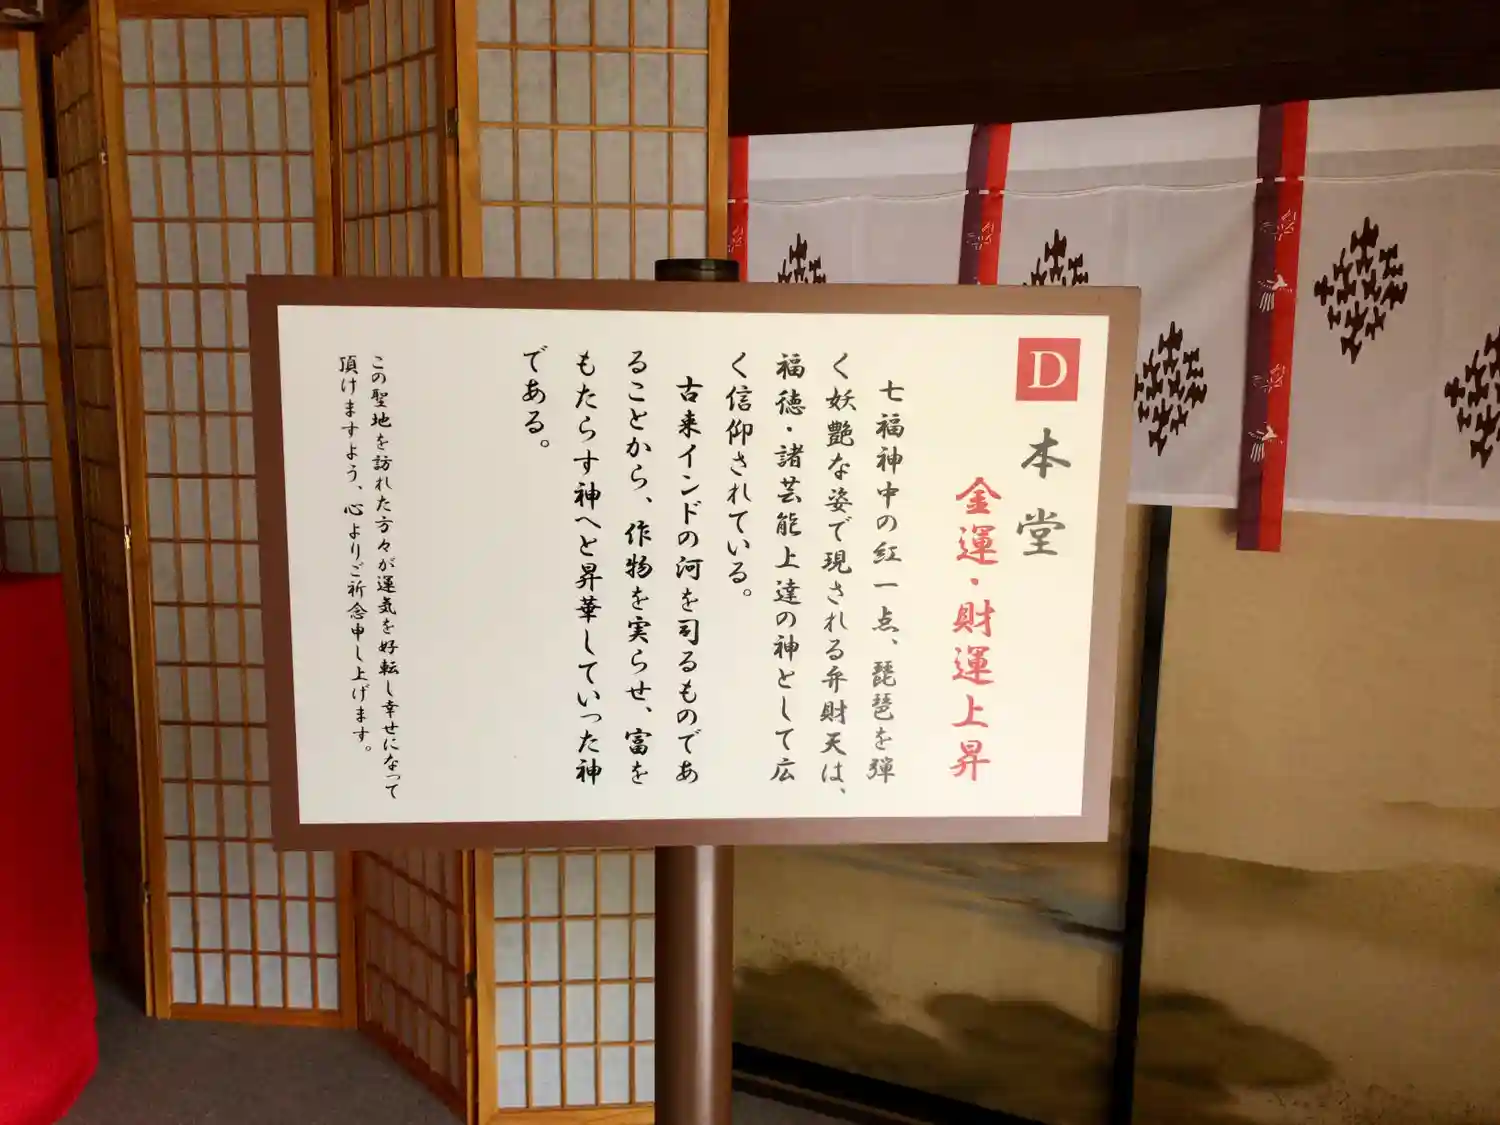 D
本堂
金運・財運上昇
七福神中の紅一点、琵琶を弾
く妖艶な姿で現される弁財天は、
福徳・諸芸能上達の神として広
く信仰されている。
古来インドの河を司るものであ
ることから、作物を実らせ、富を
もたらす神へと昇華していった神
である。
この聖地を訪れた方々が運気を好転し幸せになって
頂けますよう、心よりご祈念申し上げます。